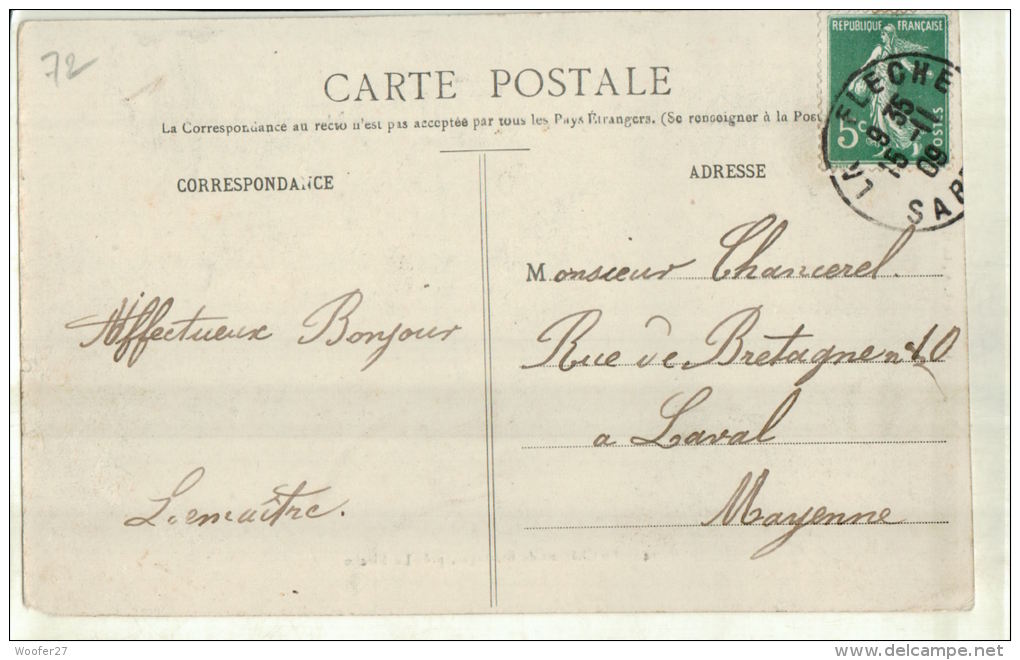 72
CARTE POSTALE
La Correspondance au recto n'est pas acceptée par tous les Pays Étrangers. (Se renseigner à la Post
RÉPUBLIQUE FRANÇAISE
5c
POSTES
LA FLECHE
15 9 35
-11
09
SAR
CORRESPONDANCE
ADRESSE
Affectueux Bonjour
Lemaître.
Monsieur Chancerel.
Rue de Bretagne n°
a Laval
Mayenne
Woofer27